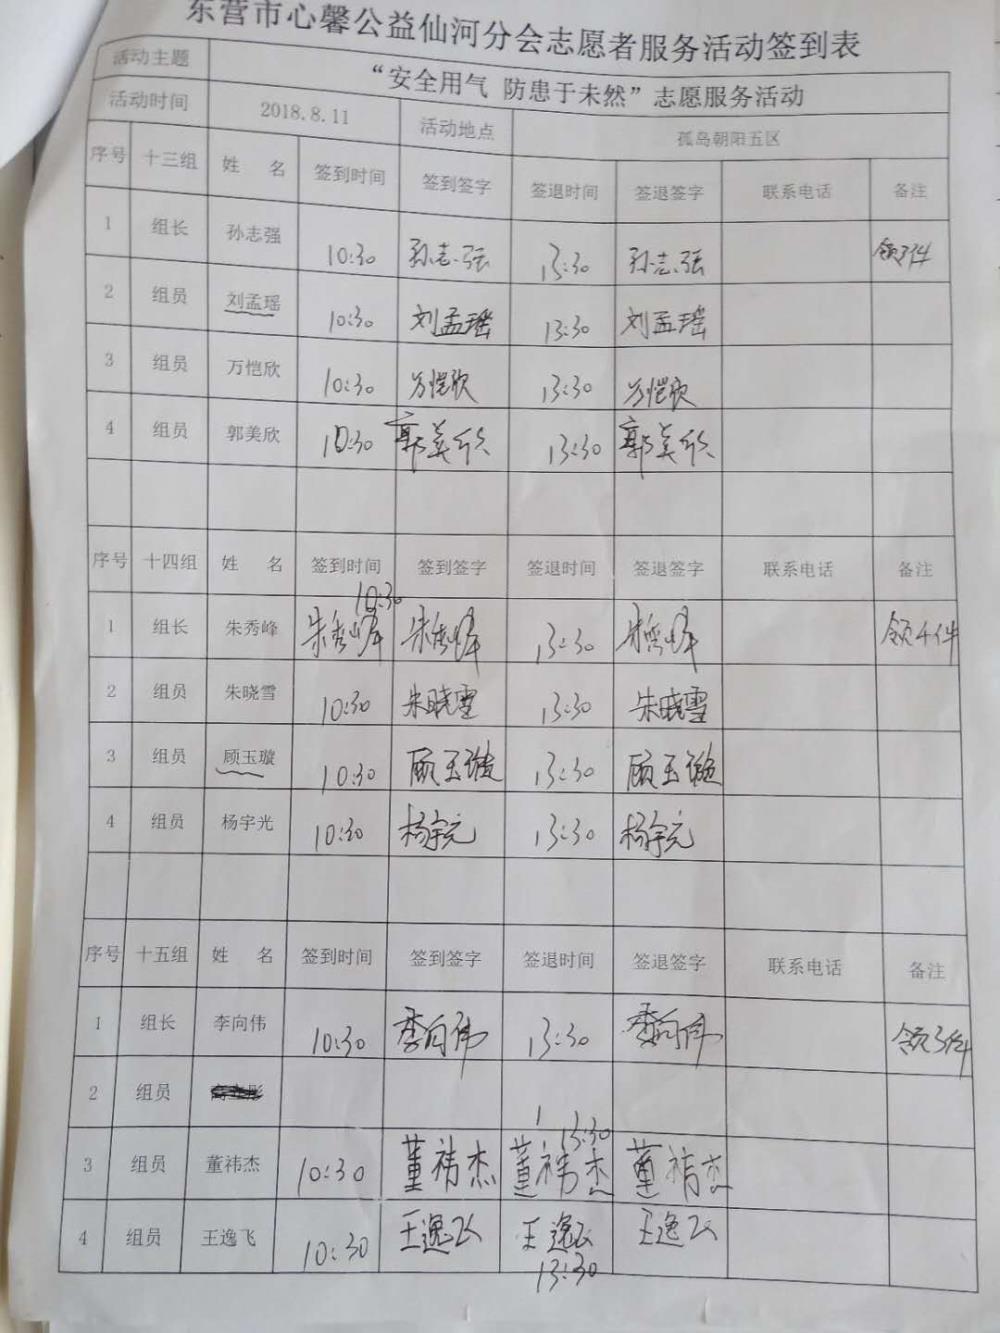 东营市心馨公益仙河分会志愿者服务活动签到表
活动主题 “安全用气 防患于未然”志愿服务活动
活动时间 2018.8.11 活动地点 孤岛朝阳五区
序号 十三组 姓 名 签到时间 签到签字 签退时间 签退签字 联系电话 备注
1 组长 孙志强 10:30 孙志强 13:30 孙志强 领3件
2 组员 刘孟瑶 10:30 刘孟瑶 13:30 刘孟瑶
3 组员 万恺欣 10:30 万恺欣 13:30 万恺欣
4 组员 郭美欣 10:30 郭美欣 13:30 郭美欣
序号 十四组 姓 名 签到时间 签到签字 签退时间 签退签字 联系电话 备注
10:30
1 组长 朱秀峰 朱秀峰 朱秀峰 13:30 朱秀峰 领4件
2 组员 朱晓雪 10:30 朱晓雪 13:30 朱晓雪
3 组员 顾玉璇 10:30 顾玉璇 13:30 顾玉璇
4 组员 杨宇光 10:30 杨宇光 13:30 杨宇光
序号 十五组 姓 名 签到时间 签到签字 签退时间 签退签字 联系电话 备注
1 组长 李向伟 10:30 李向伟 13:30 李向伟 领3件
2 组员
1 13:30
3 组员 董祎杰 10:30 董祎杰 董祎杰 董祎杰
4 组员 王逸飞 10:30 王逸飞 王逸飞 王逸飞
13:30